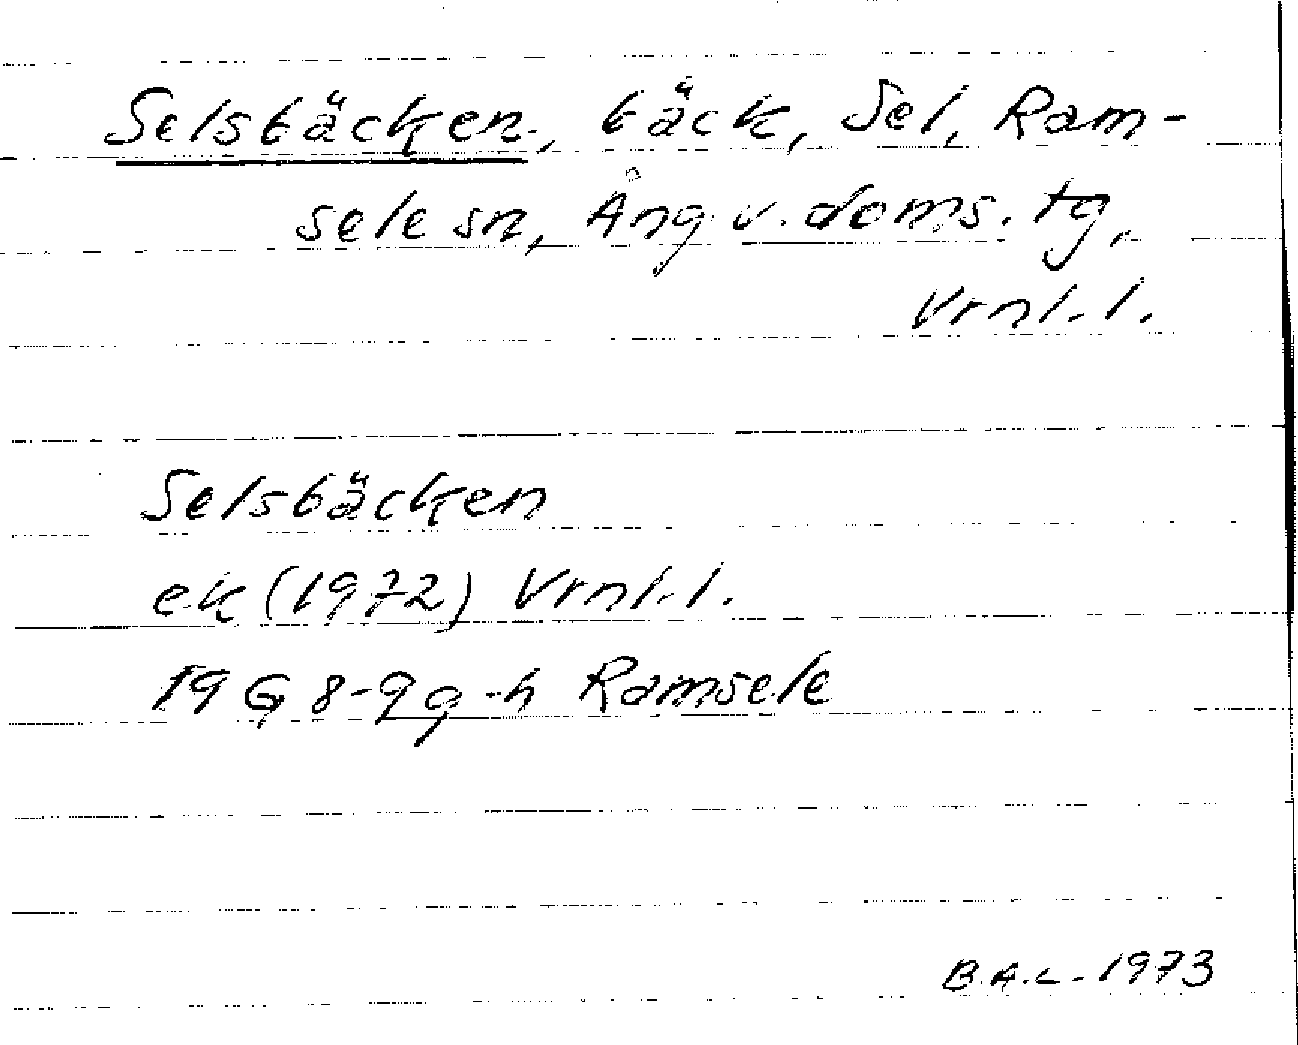 Selsbäcken, bäck, Sel, Ram-
sele sn, Ång. v. doms. tg,
Vrnl. l.
Selsbäcken
ek (1972) Vrnl. l.
19 G 8-9 g-h Ramsele
B.A.L. 1973